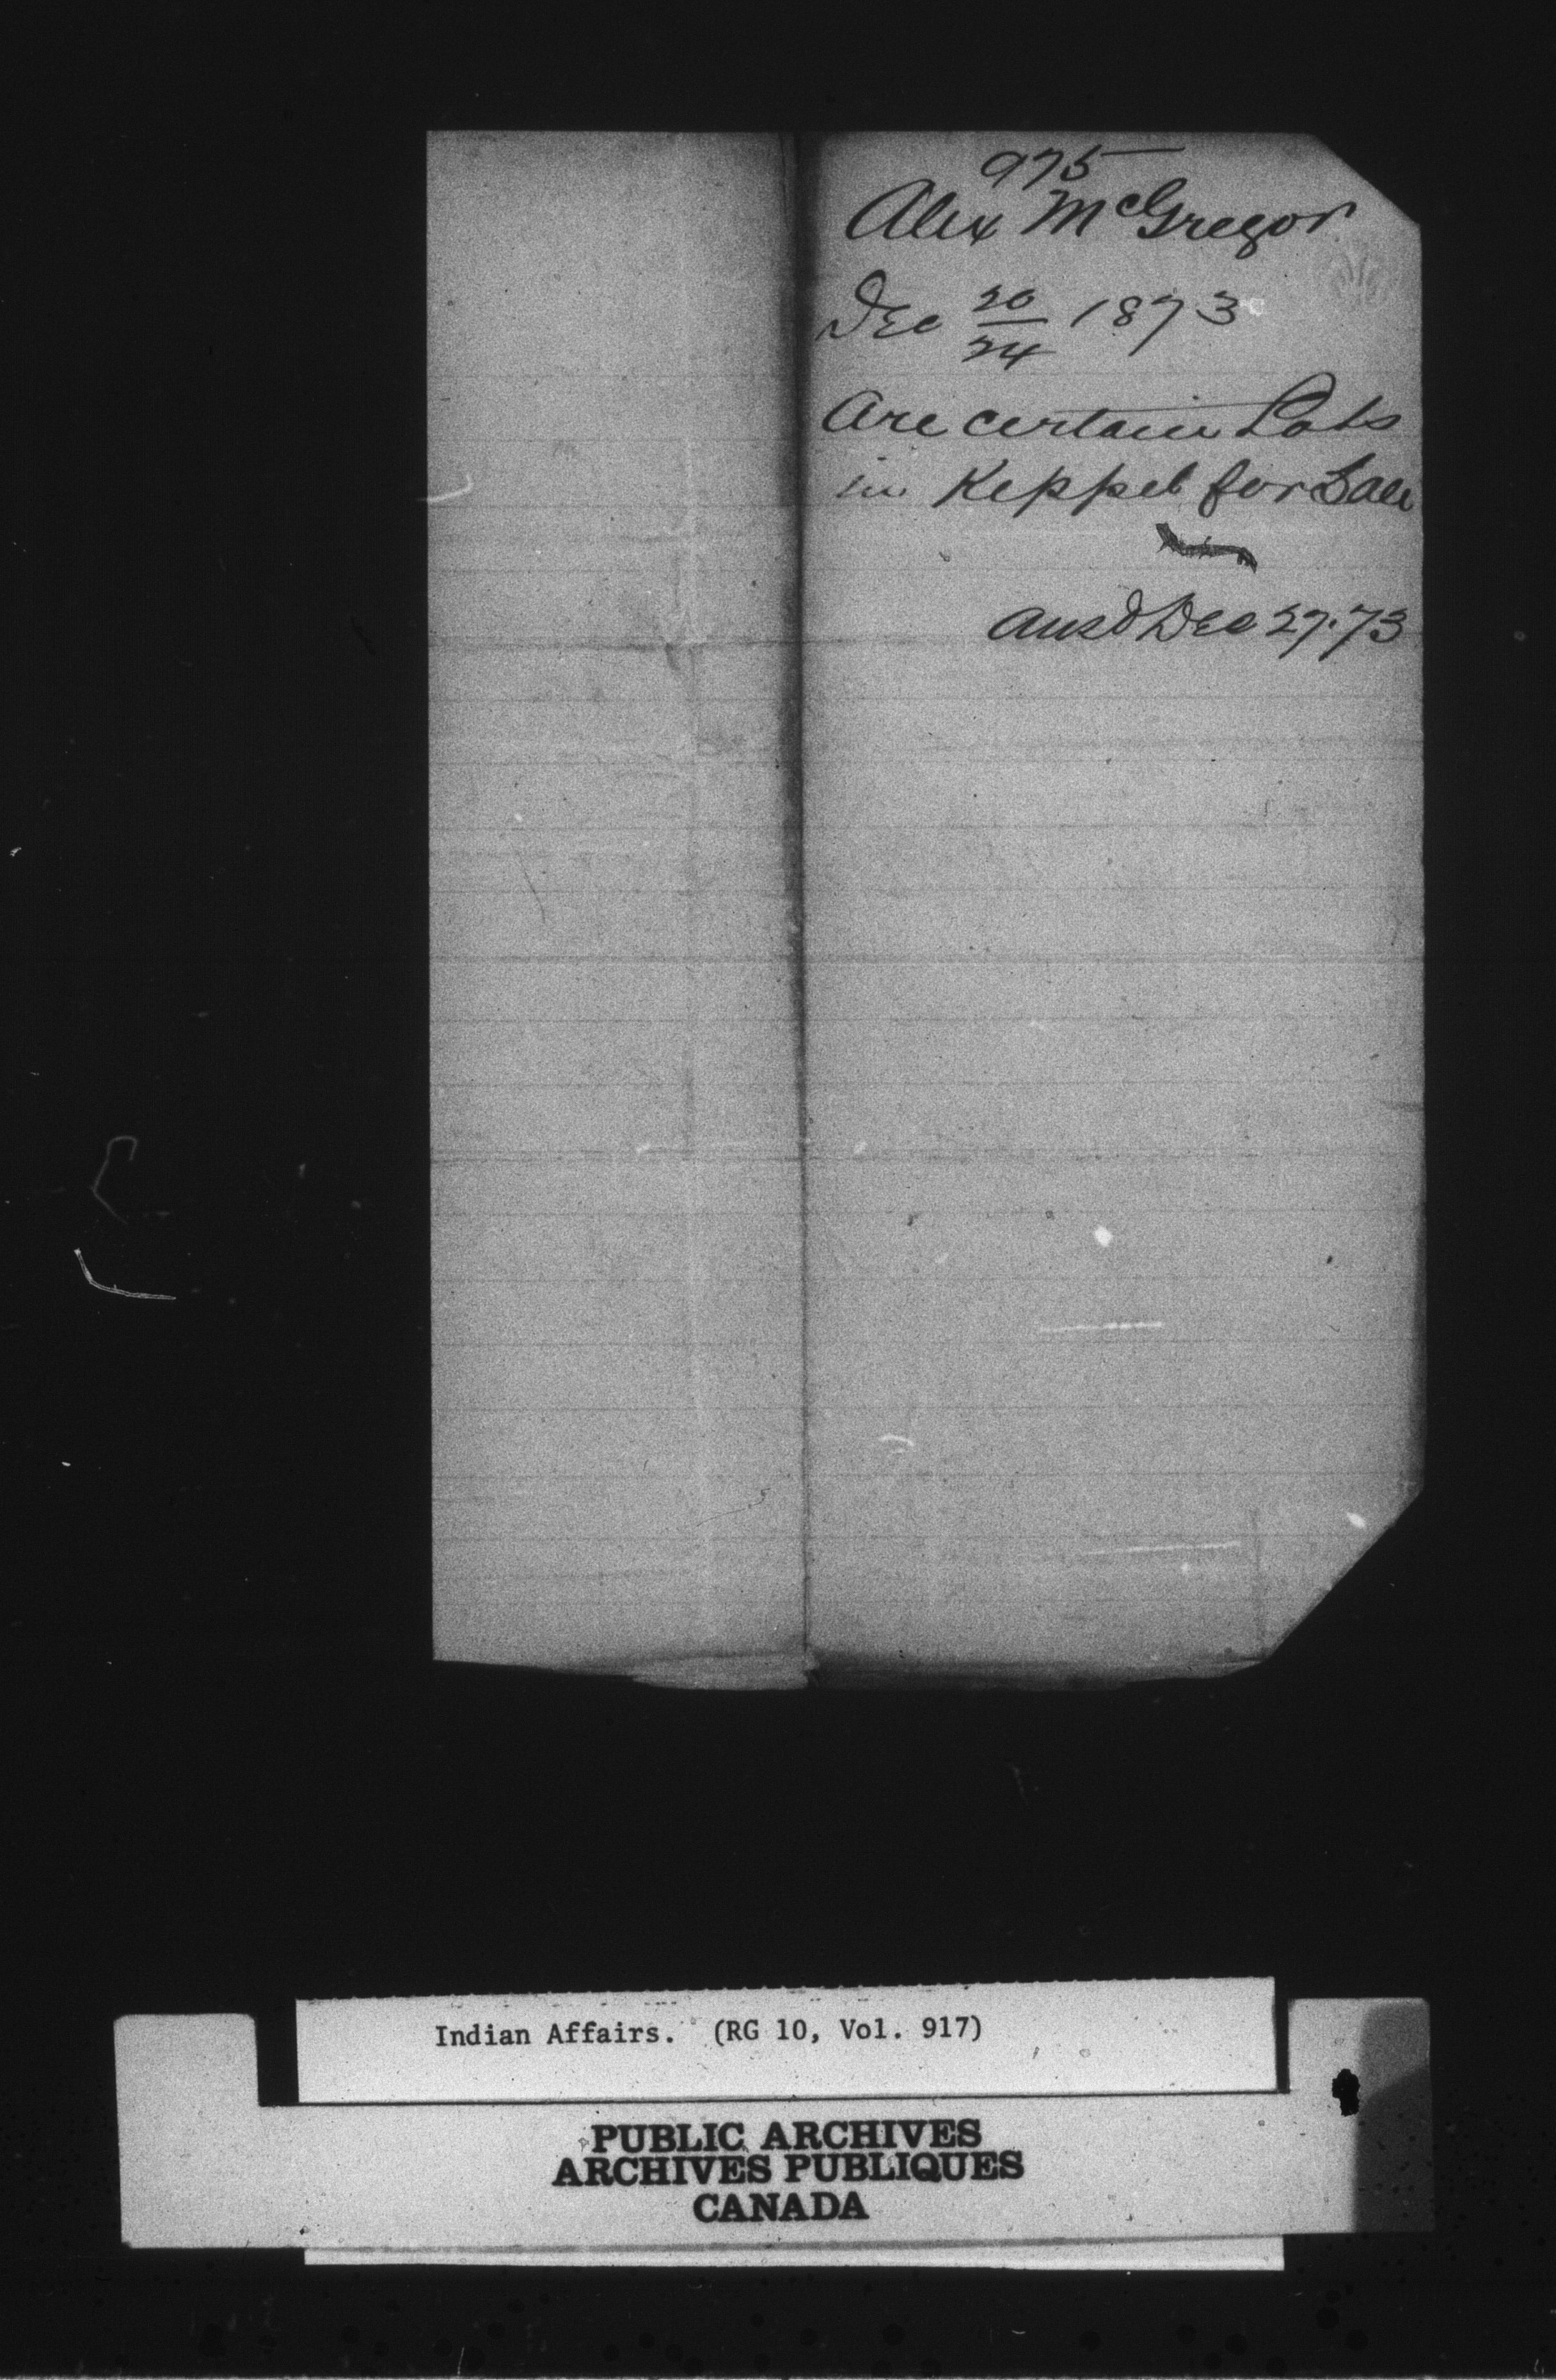 975
Alex McGregor
Dec 20/24 1873
Are certain Lots
in Keppel for Sale
Ansd Dec 27.73
Indian Affairs. (RG 10, Vol. 917)
PUBLIC ARCHIVES
ARCHIVES PUBLIQUES
CANADA